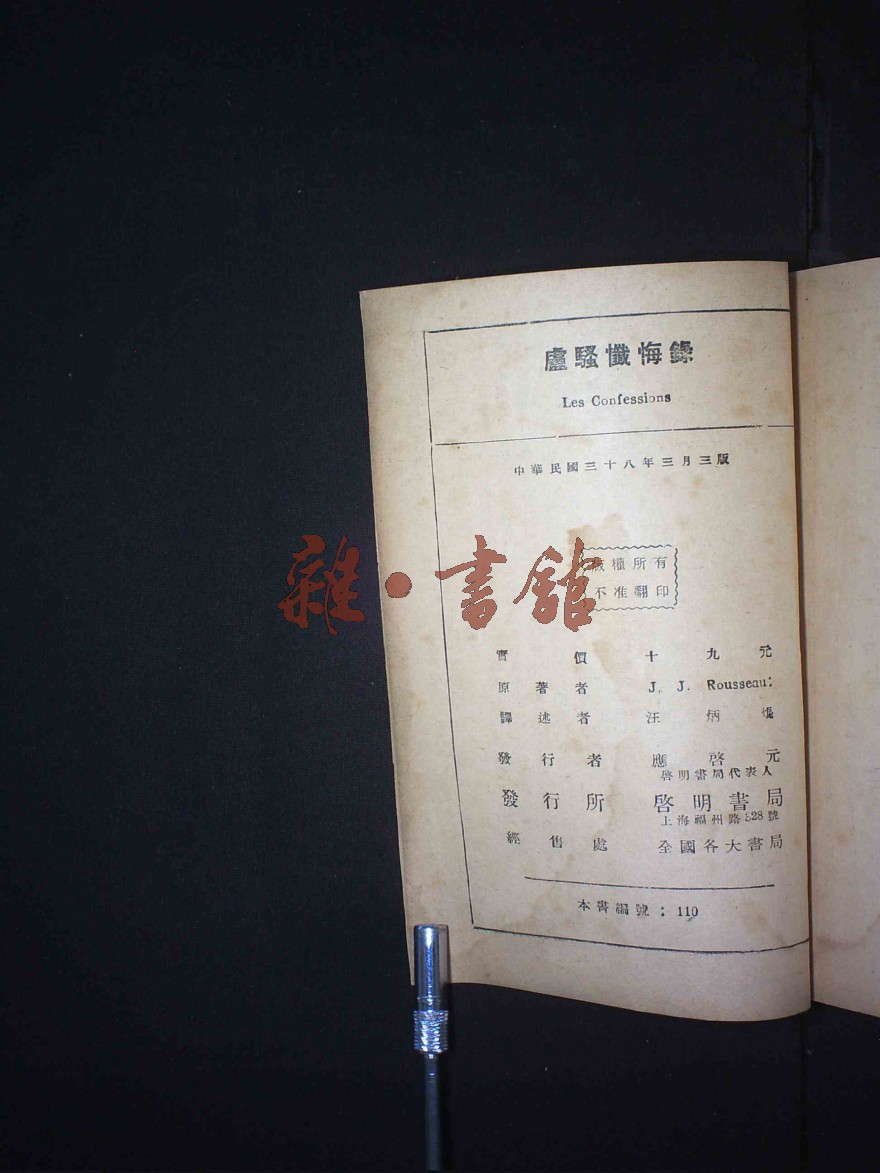 盧騷懺悔錄
Les Confessions
中華民國三十八年三月三版
版權所有
不准翻印
雜·書館
實價十九元
原著者 J. J. Rousseau:
譯述者 汪炳焜
發行者 應啓元
啓明書局代表人
發行所 啓明書局
上海福州路328號
經售處 全國各大書局
本書編號：110